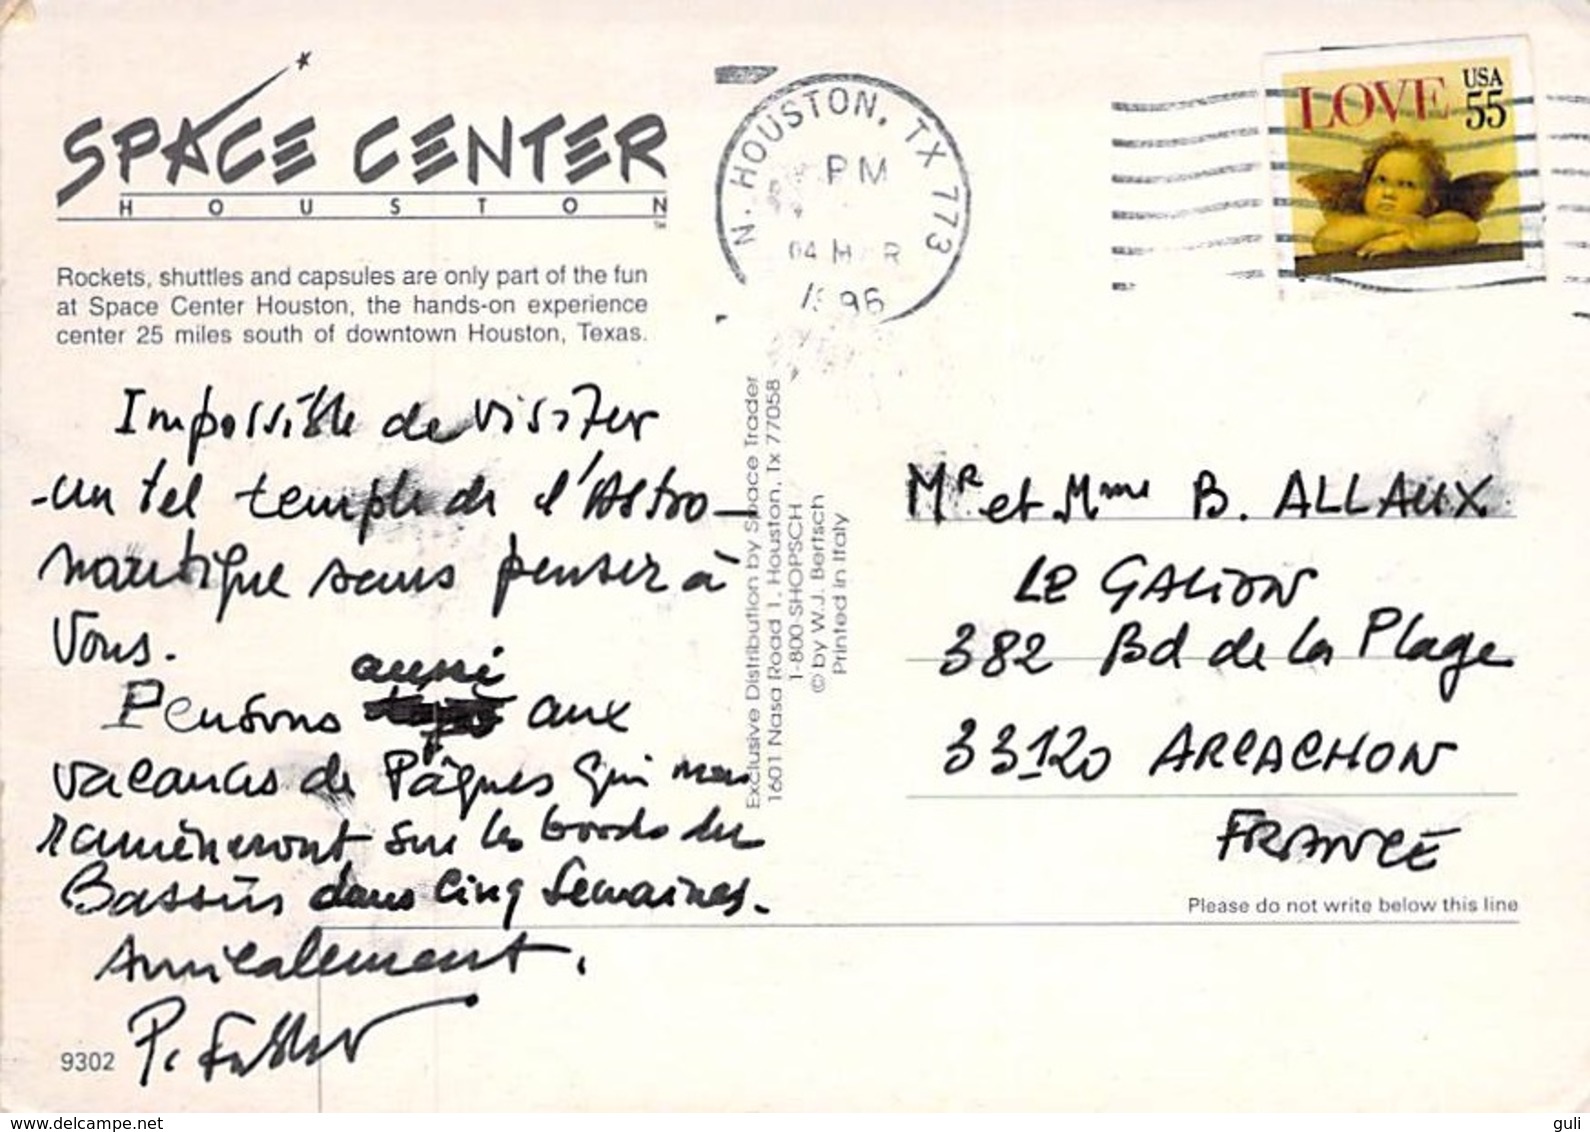 SPACE CENTER
HOUSTON
Rockets, shuttles and capsules are only part of the fun
at Space Center Houston, the hands-on experience
center 25 miles south of downtown Houston, Texas.
Impossible de visiter
un tel temple de l'Astro-
nautique sans penser à
Vous.
Pensons aussi aux
vacances de Pâques qui nous
ramèneront sur les bords du
Bassin dans cinq semaines.
Amicalement.
P.
9302
N. HOUSTON, TX 773
PM
04 MAR
1996
Exclusive Distribution by Space Trader
1601 Nasa Road 1, Houston, Tx 77058
1-800-SHOPSCH
© by W.J. Bertsch
Printed in Italy
LOVE USA
55
MR et Mme B. ALLAUX
LE GALION
382 Bd de la Plage
33120 ARCACHON
FRANCE
Please do not write below this line
www.delcampe.net
guli